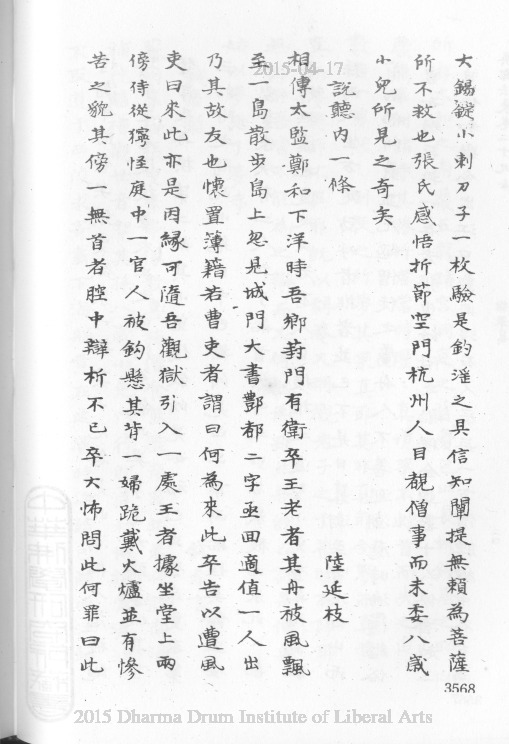 大錫鏇小刺刀子一枚驗是鈎滛之具信知闡提無賴為菩薩
所不救也張氏感悟折節空門杭州人目覩僧事而未委八歲
小兒所見之奇矣
說聽内一條 陸延枝
相傳太監鄭和下洋時吾鄉葑門有衛卒王老者其舟被風飄
至一島散步島上忽見城門大書酆都二字亟回適值一人出
乃其故友也懷置薄籍若曹吏者謂曰何為來此卒告以遭風
吏曰來此亦是因緣可隨吾觀獄引入一處王者據坐堂上兩
傍侍從獰怪庭中一官人被鈎懸其背一婦跪戴火爐並有慘
苦之貌其傍一無首者腔中辯析不已卒大怖問此何罪曰此
3568
2015-04-17
2015 Dharma Drum Institute of Liberal Arts